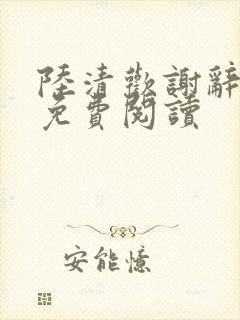 陸清歡謝辭
免費閱讀
安能憶